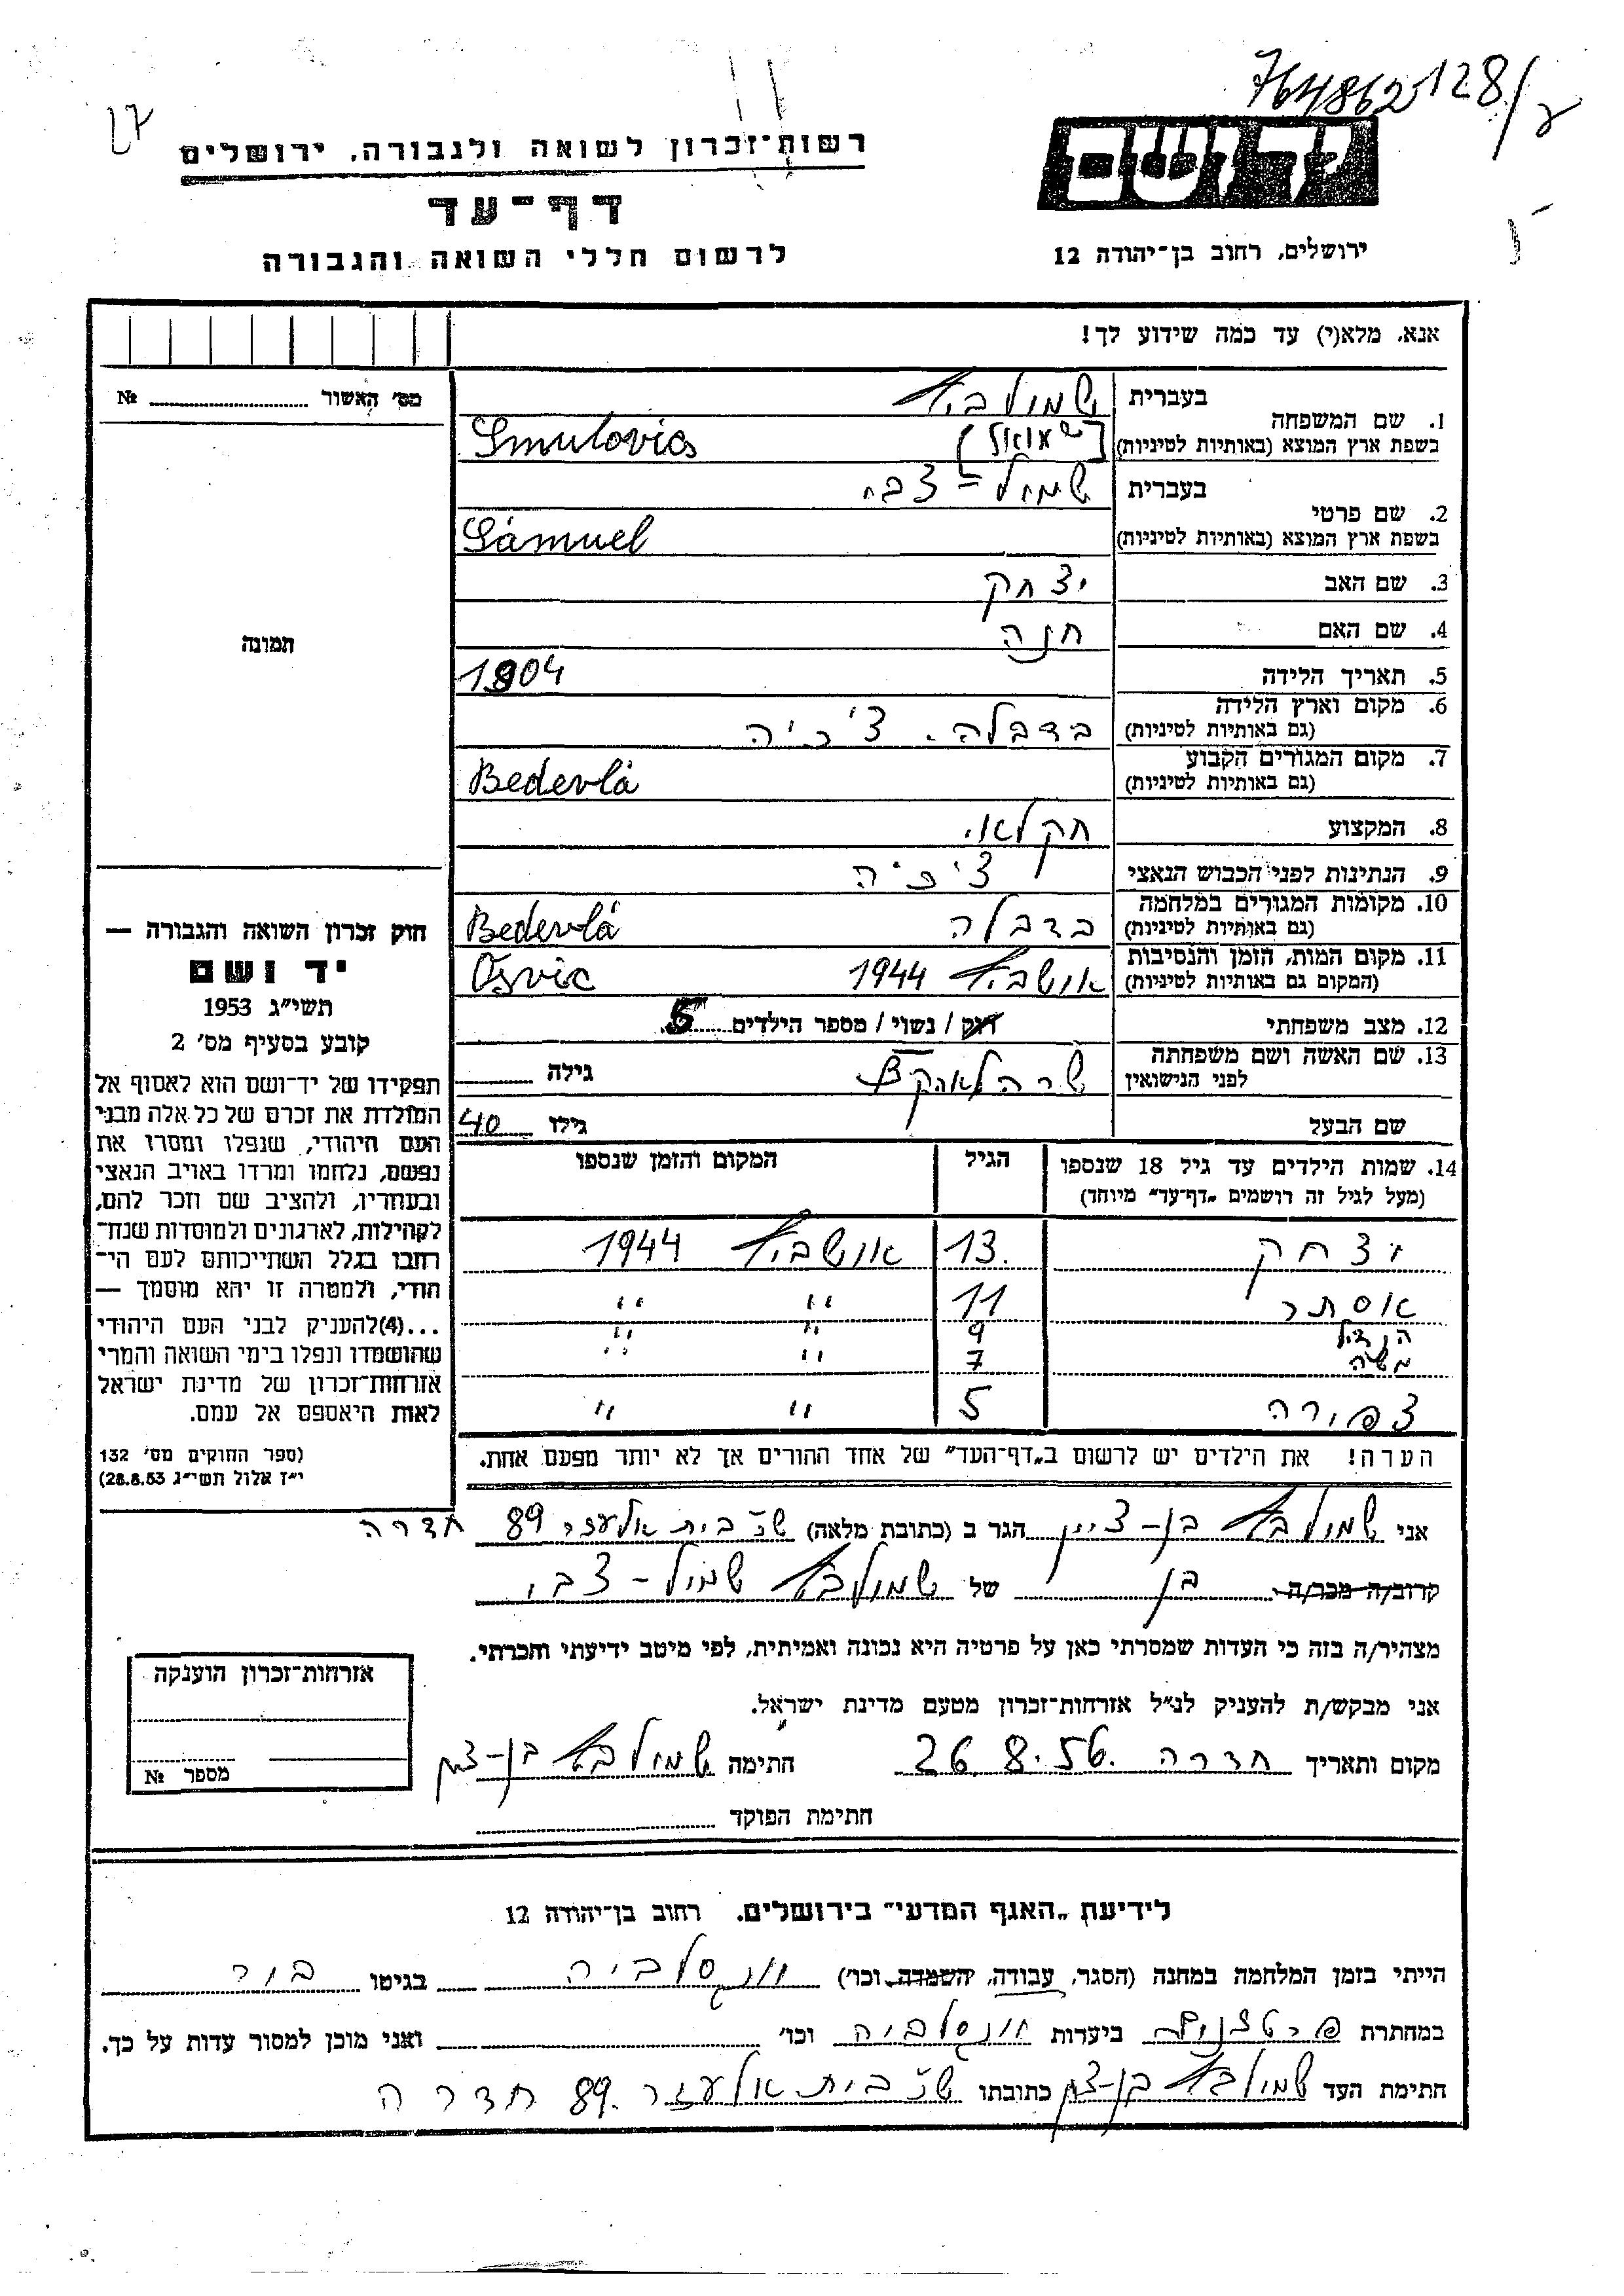 764862 128/
רשות־זכרון לשואה ולגבורה, ירושלים
דף־עד
לרשום חללי השואה והגבורה
ידושם
ירושלים, רחוב בן־יהודה 12
אנא, מלא(י) עד כמה שידוע לך!
מס׳ האשור № 
תמונה
1. שם המשפחה בעברית שמולביץ
בשפת ארץ המוצא (באותיות לטיניות) [שמואל] Smulovics
2. שם פרטי בעברית שמיל-צבי
בשפת ארץ המוצא (באותיות לטיניות) Sámuel
3. שם האב יצחק
4. שם האם חנה
5. תאריך הלידה 1904
6. מקום וארץ הלידה (גם באותיות לטיניות) בדבלה. צ'כיה
7. מקום המגורים הקבוע (גם באותיות לטיניות) Bedevlá
8. המקצוע חקלאי
9. הנתינות לפני הכבוש הנאצי צ'כיה
10. מקומות המגורים במלחמה (גם באותיות לטיניות) בדבלה Bedevlá
11. מקום המות, הזמן והנסיבות (המקום גם באותיות לטיניות) אושביץ 1944 Osvic
12. מצב משפחתי רוק / נשוי / מספר הילדים 5
13. שם האשה ושם משפחתה לפני הנישואין שרה גילה
שם הבעל גילו 40
14. שמות הילדים עד גיל 18 שנספו (מעל לגיל זה רושמים „דף־עד״ מיוחד) הגיל המקום והזמן שנספו
יצחק 13. אושביץ 1944
אסתר 11 " "
הנדיל 9 " "
משה 7 " "
צפורה 5 " "
הערה! את הילדים יש לרשום ב„דף־העד״ של אחד ההורים אך לא יותר מפעם אחת.
חוק זכרון השואה והגבורה —
יד ושם
תשי״ג 1953
קובע בסעיף מס׳ 2
תפקידו של יד־ושם הוא לאסוף אל
המולדת את זכרם של כל אלה מבני
העם היהודי, שנפלו ומסרו את
נפשם, נלחמו ומרדו באויב הנאצי
ובעוזריו, ולהציב שם וזכר להם,
לקהילות, לארגונים ולמוסדות שנח־
רבו בגלל השתייכותם לעם הי־
הודי, ולמטרה זו יהא מוסמך —
...(4) להעניק לבני העם היהודי
שהושמדו ונפלו בימי השואה והמרי
אזרחות־זכרון של מדינת ישראל
לאות היאספם אל עמם.
(ספר החוקים מס׳ 132
י״ז אלול תשי״ג 28.8.53)
אני שמולביץ בן-ציון הגר ב (כתובת מלאה) שכ' בית אלעזרי 89 חדרה
קרוב/ה מכר/ה בן של שמולביץ שמיל-צבי
מצהיר/ה בזה כי העדות שמסרתי כאן על פרטיה היא נכונה ואמיתית, לפי מיטב ידיעתי והכרתי.
אני מבקש/ת להעניק לנ״ל אזרחות־זכרון מטעם מדינת ישראל.
מקום ותאריך חדרה 26.8.56 חתימה שמולביץ בן-ציון
חתימת הפוקד
אזרחות־זכרון הוענקה
מספר №
לידיעת „האגף המדעי״ בירושלים. רחוב בן־יהודה 12
הייתי בזמן המלחמה במחנה (הסגר, עבודה, השמדה, וכו׳) יוגסלביה בגיטו בור
במחתרת פרטיזנים ביערות יוגסלביה וכו׳ ואני מוכן למסור עדות על כך.
חתימת העד שמולביץ בן-ציון כתובתו שכ' בית אלעזר 89. חדרה